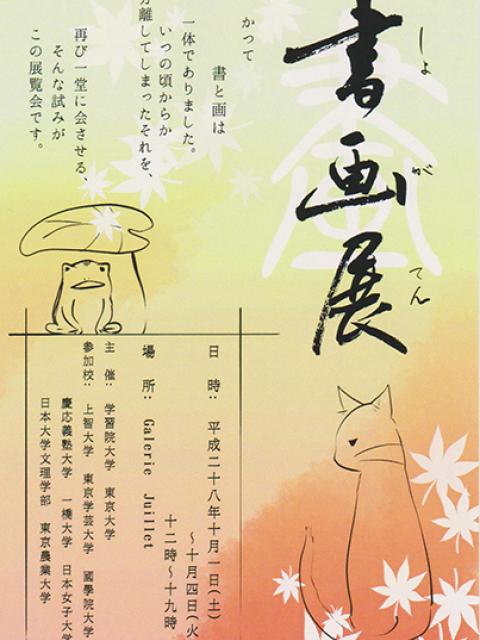 書画展
しょ が てん
かつて
書と画は
一体でありました。
いつの頃からか
離してしまったそれを、
再び一堂に会させる、
そんな試みが
この展覧会です。
日 時： 平成二十八年十月一日(土)
～十月四日(火
十二時～十九時
場 所： Galerie Juillet
主 催： 学習院大学 東京大学
参加校： 上智大学 東京学芸大学 國學院大学
慶応義塾大学 一橋大学 日本女子大学
日本大学文理学部 東京農業大学